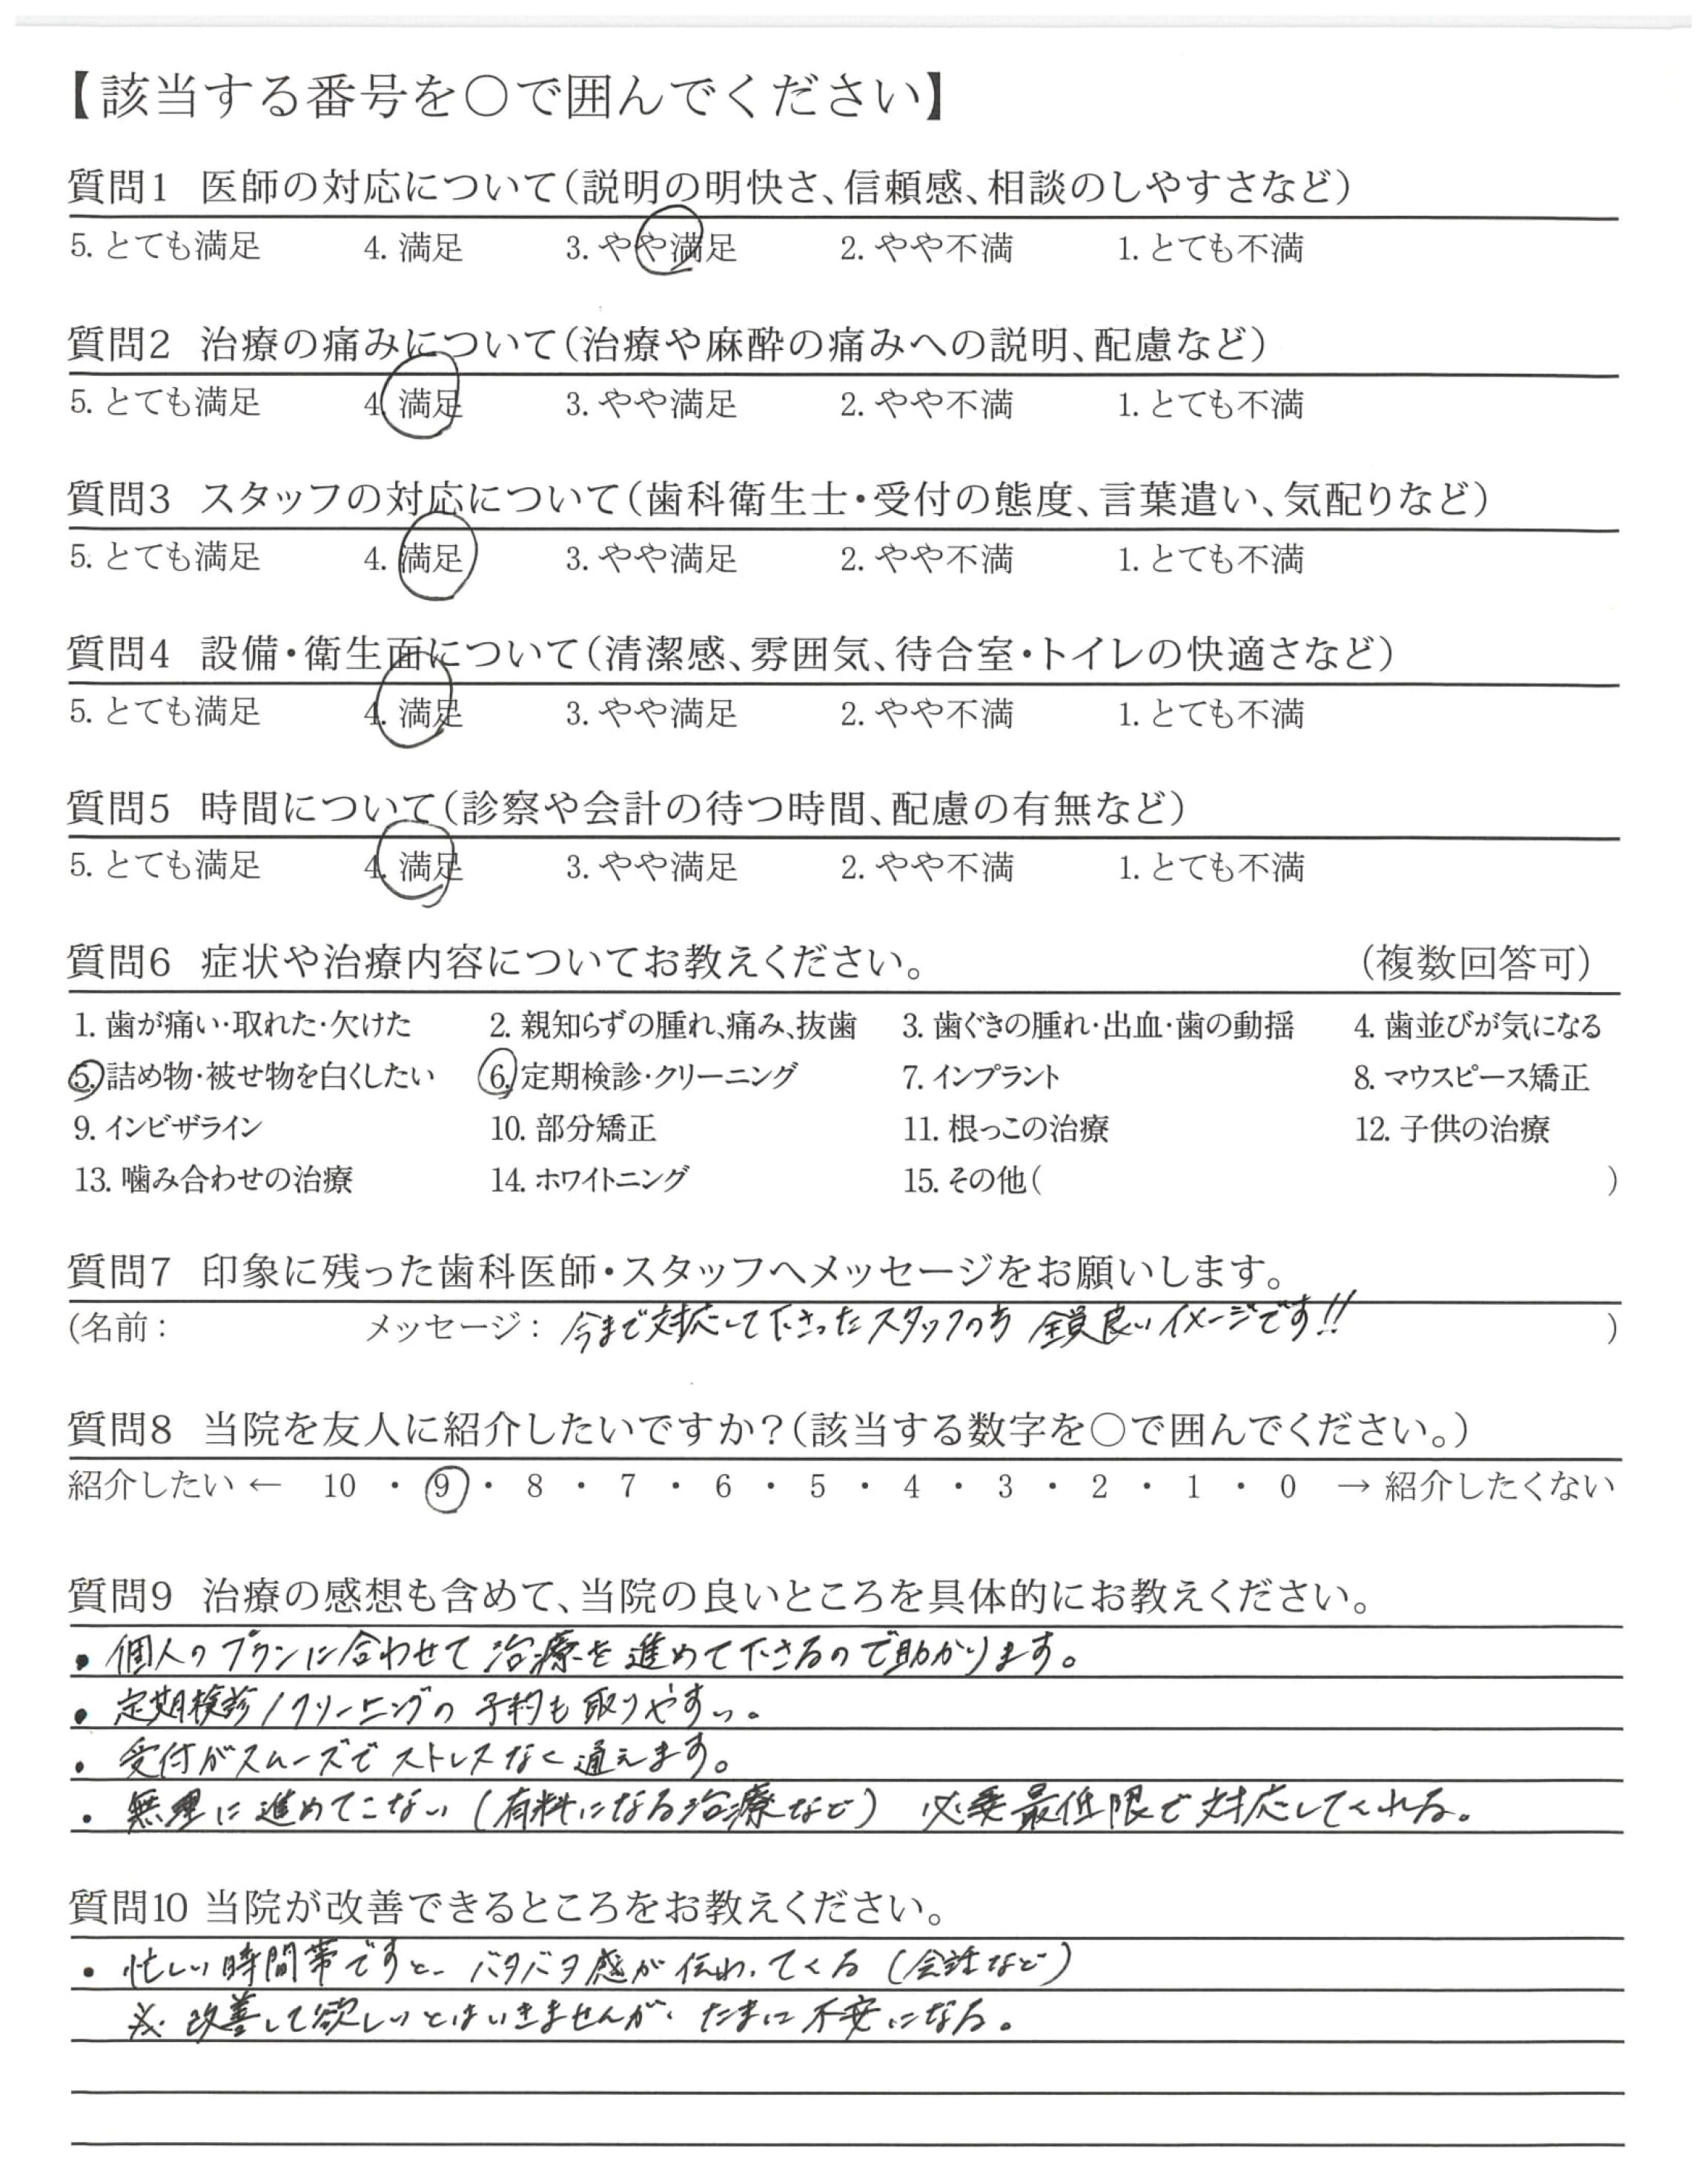 【該当する番号を○で囲んでください】
質問1 医師の対応について(説明の明快さ、信頼感、相談のしやすさなど)
5. とても満足 4. 満足 3. やや満足 2. やや不満 1. とても不満
質問2 治療の痛みについて(治療や麻酔の痛みへの説明、配慮など)
5. とても満足 4. 満足 3. やや満足 2. やや不満 1. とても不満
質問3 スタッフの対応について(歯科衛生士・受付の態度、言葉遣い、気配りなど)
5. とても満足 4. 満足 3. やや満足 2. やや不満 1. とても不満
質問4 設備・衛生面について(清潔感、雰囲気、待合室・トイレの快適さなど)
5. とても満足 4. 満足 3. やや満足 2. やや不満 1. とても不満
質問5 時間について(診察や会計の待つ時間、配慮の有無など)
5. とても満足 4. 満足 3. やや満足 2. やや不満 1. とても不満
質問6 症状や治療内容についてお教えください。 (複数回答可)
1. 歯が痛い・取れた・欠けた 2. 親知らずの腫れ、痛み、抜歯 3. 歯ぐきの腫れ・出血・歯の動揺 4. 歯並びが気になる
5. 詰め物・被せ物を白くしたい 6. 定期検診・クリーニング 7. インプラント 8. マウスピース矯正
9. インビザライン 10. 部分矯正 11. 根っこの治療 12. 子供の治療
13. 噛み合わせの治療 14. ホワイトニング 15. その他( )
質問7 印象に残った歯科医師・スタッフへメッセージをお願いします。
(名前: メッセージ: 今まで対応して下さったスタッフの方 全員良いイメージです!! )
質問8 当院を友人に紹介したいですか?(該当する数字を○で囲んでください。)
紹介したい ← 10 ・ 9 ・ 8 ・ 7 ・ 6 ・ 5 ・ 4 ・ 3 ・ 2 ・ 1 ・ 0 → 紹介したくない
質問9 治療の感想も含めて、当院の良いところを具体的にお教えください。
・個人のプランに合わせて治療を進めて下さるので助かります。
・定期検診/クリーニングの予約も取りやすい。
・受付がスムーズでストレスなく通えます。
・無理に進めてこない(有料になる治療など) 必要最低限で対応してくれる。
質問10 当院が改善できるところをお教えください。
・忙しい時間帯ですと、バタバタ感が伝わってくる(会話など)
※改善して欲しいとはいきませんが、たまに不安になる。